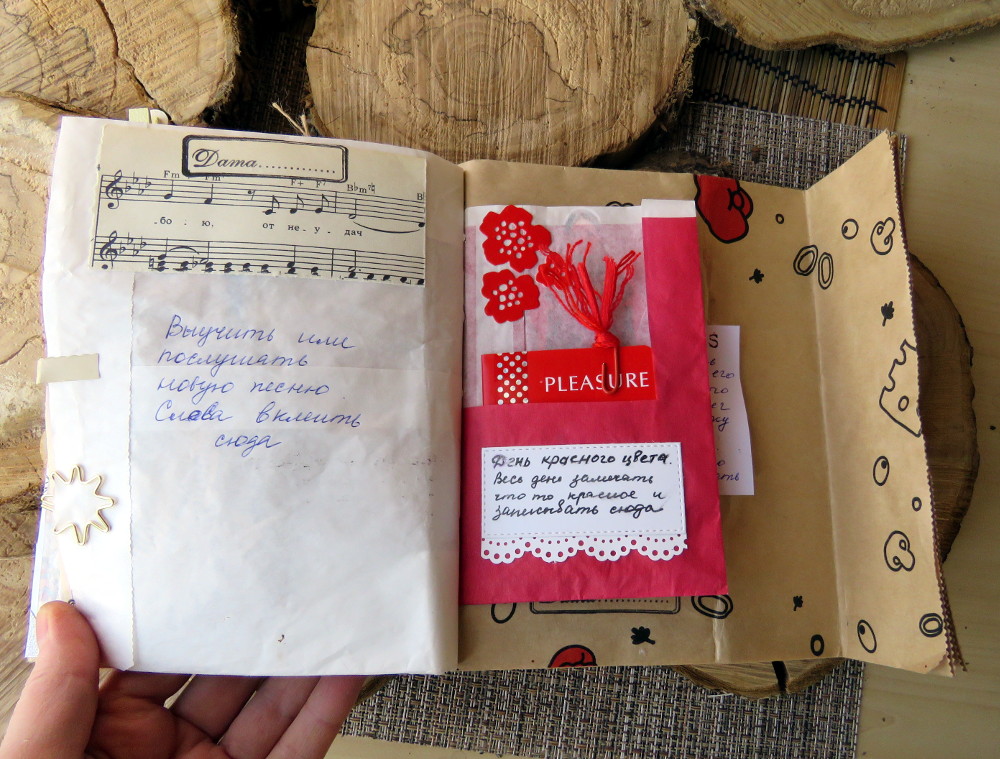 Дата
Fm Fm F+ F7 B♭m7
-бо - ю, от не - у - дач
Выучить или
послушать
новую песню
Слова вклеить
сюда
PLEASURE
День красного цвета.
Весь день замечать
что то красное и
записывать сюда
S
его